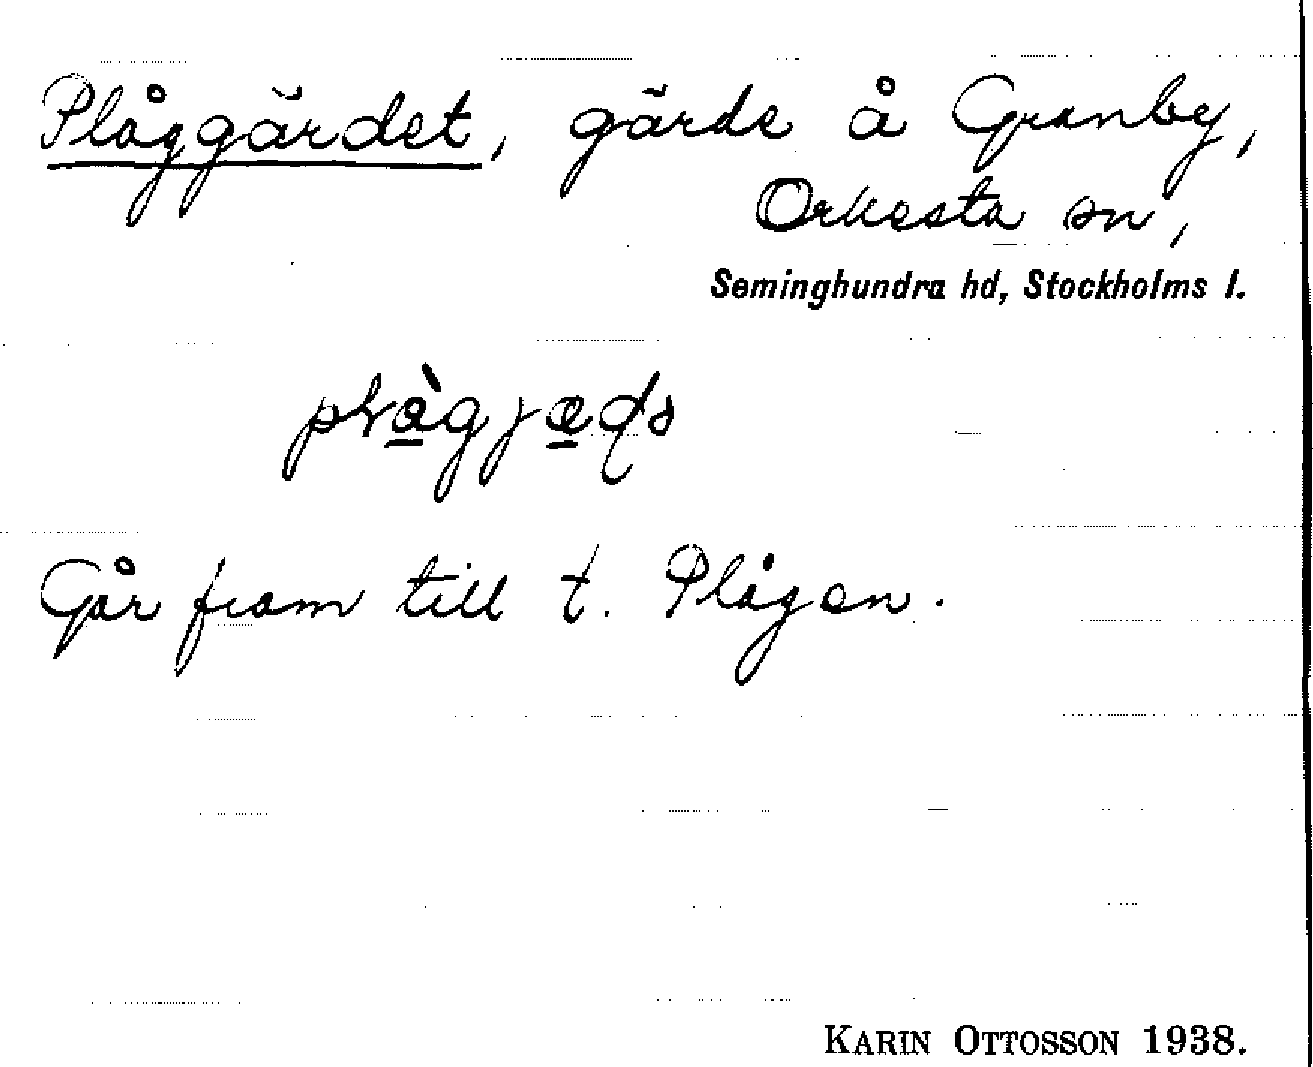 Plåggärdet, gärde å Granby,
Orkesta sn,
Seminghundra hd, Stockholms l.
Går fram till t. Plågen.
KARIN OTTOSSON 1938.